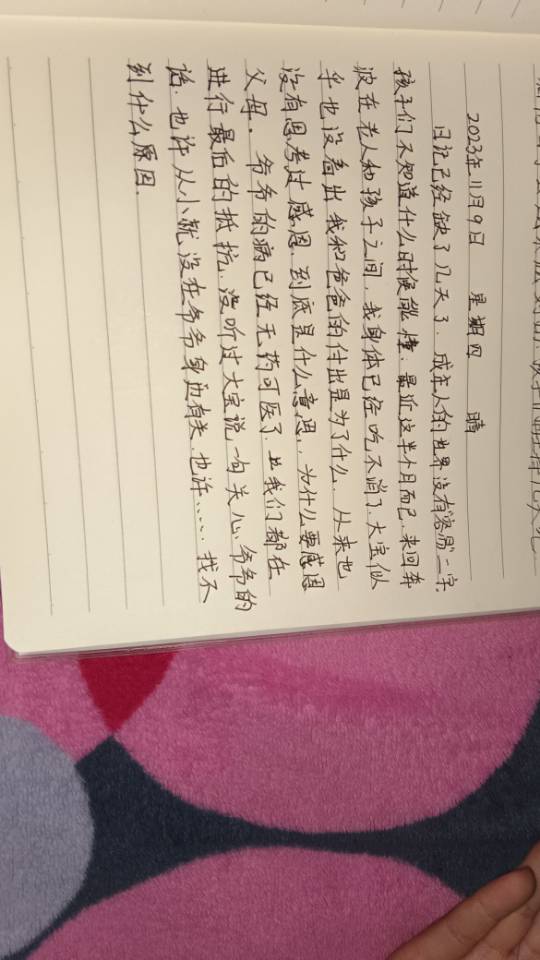 2023年11月9日 星期四 晴
日记已经缺了几天了. 成年人的世界没有"容易"二字.
孩子们不知道什么时候能懂. 最近这半个月而已. 来回奔
波在老人和孩子之间, 我身体已经吃不消了. 大宝似
乎也没看出我和爸爸的付出是为了什么. 从来也
没有思考过感恩. 到底是什么意思. 为什么要感恩
父母. 爷爷的病已经无药可医了. 且我们都在
进行最后的抵抗. 没听过大宝说一句关心爷爷的
话. 也许从小就没在爷爷身边有关. 也许...... 找不
到什么原因.